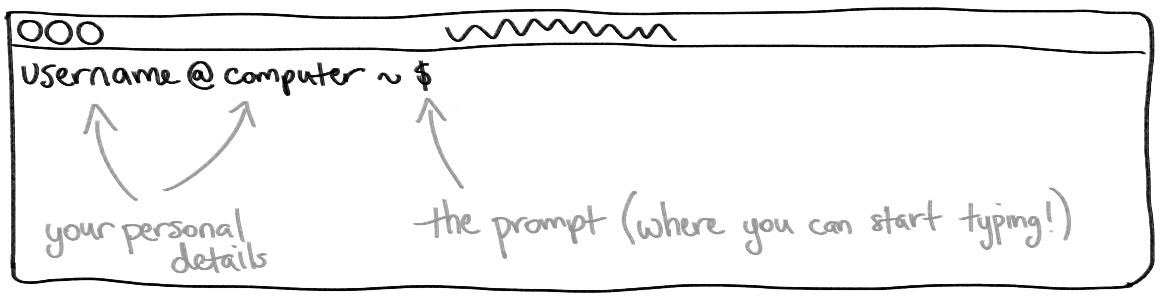 username @ computer ~ $
your personal
details
the prompt (where you can start typing!)